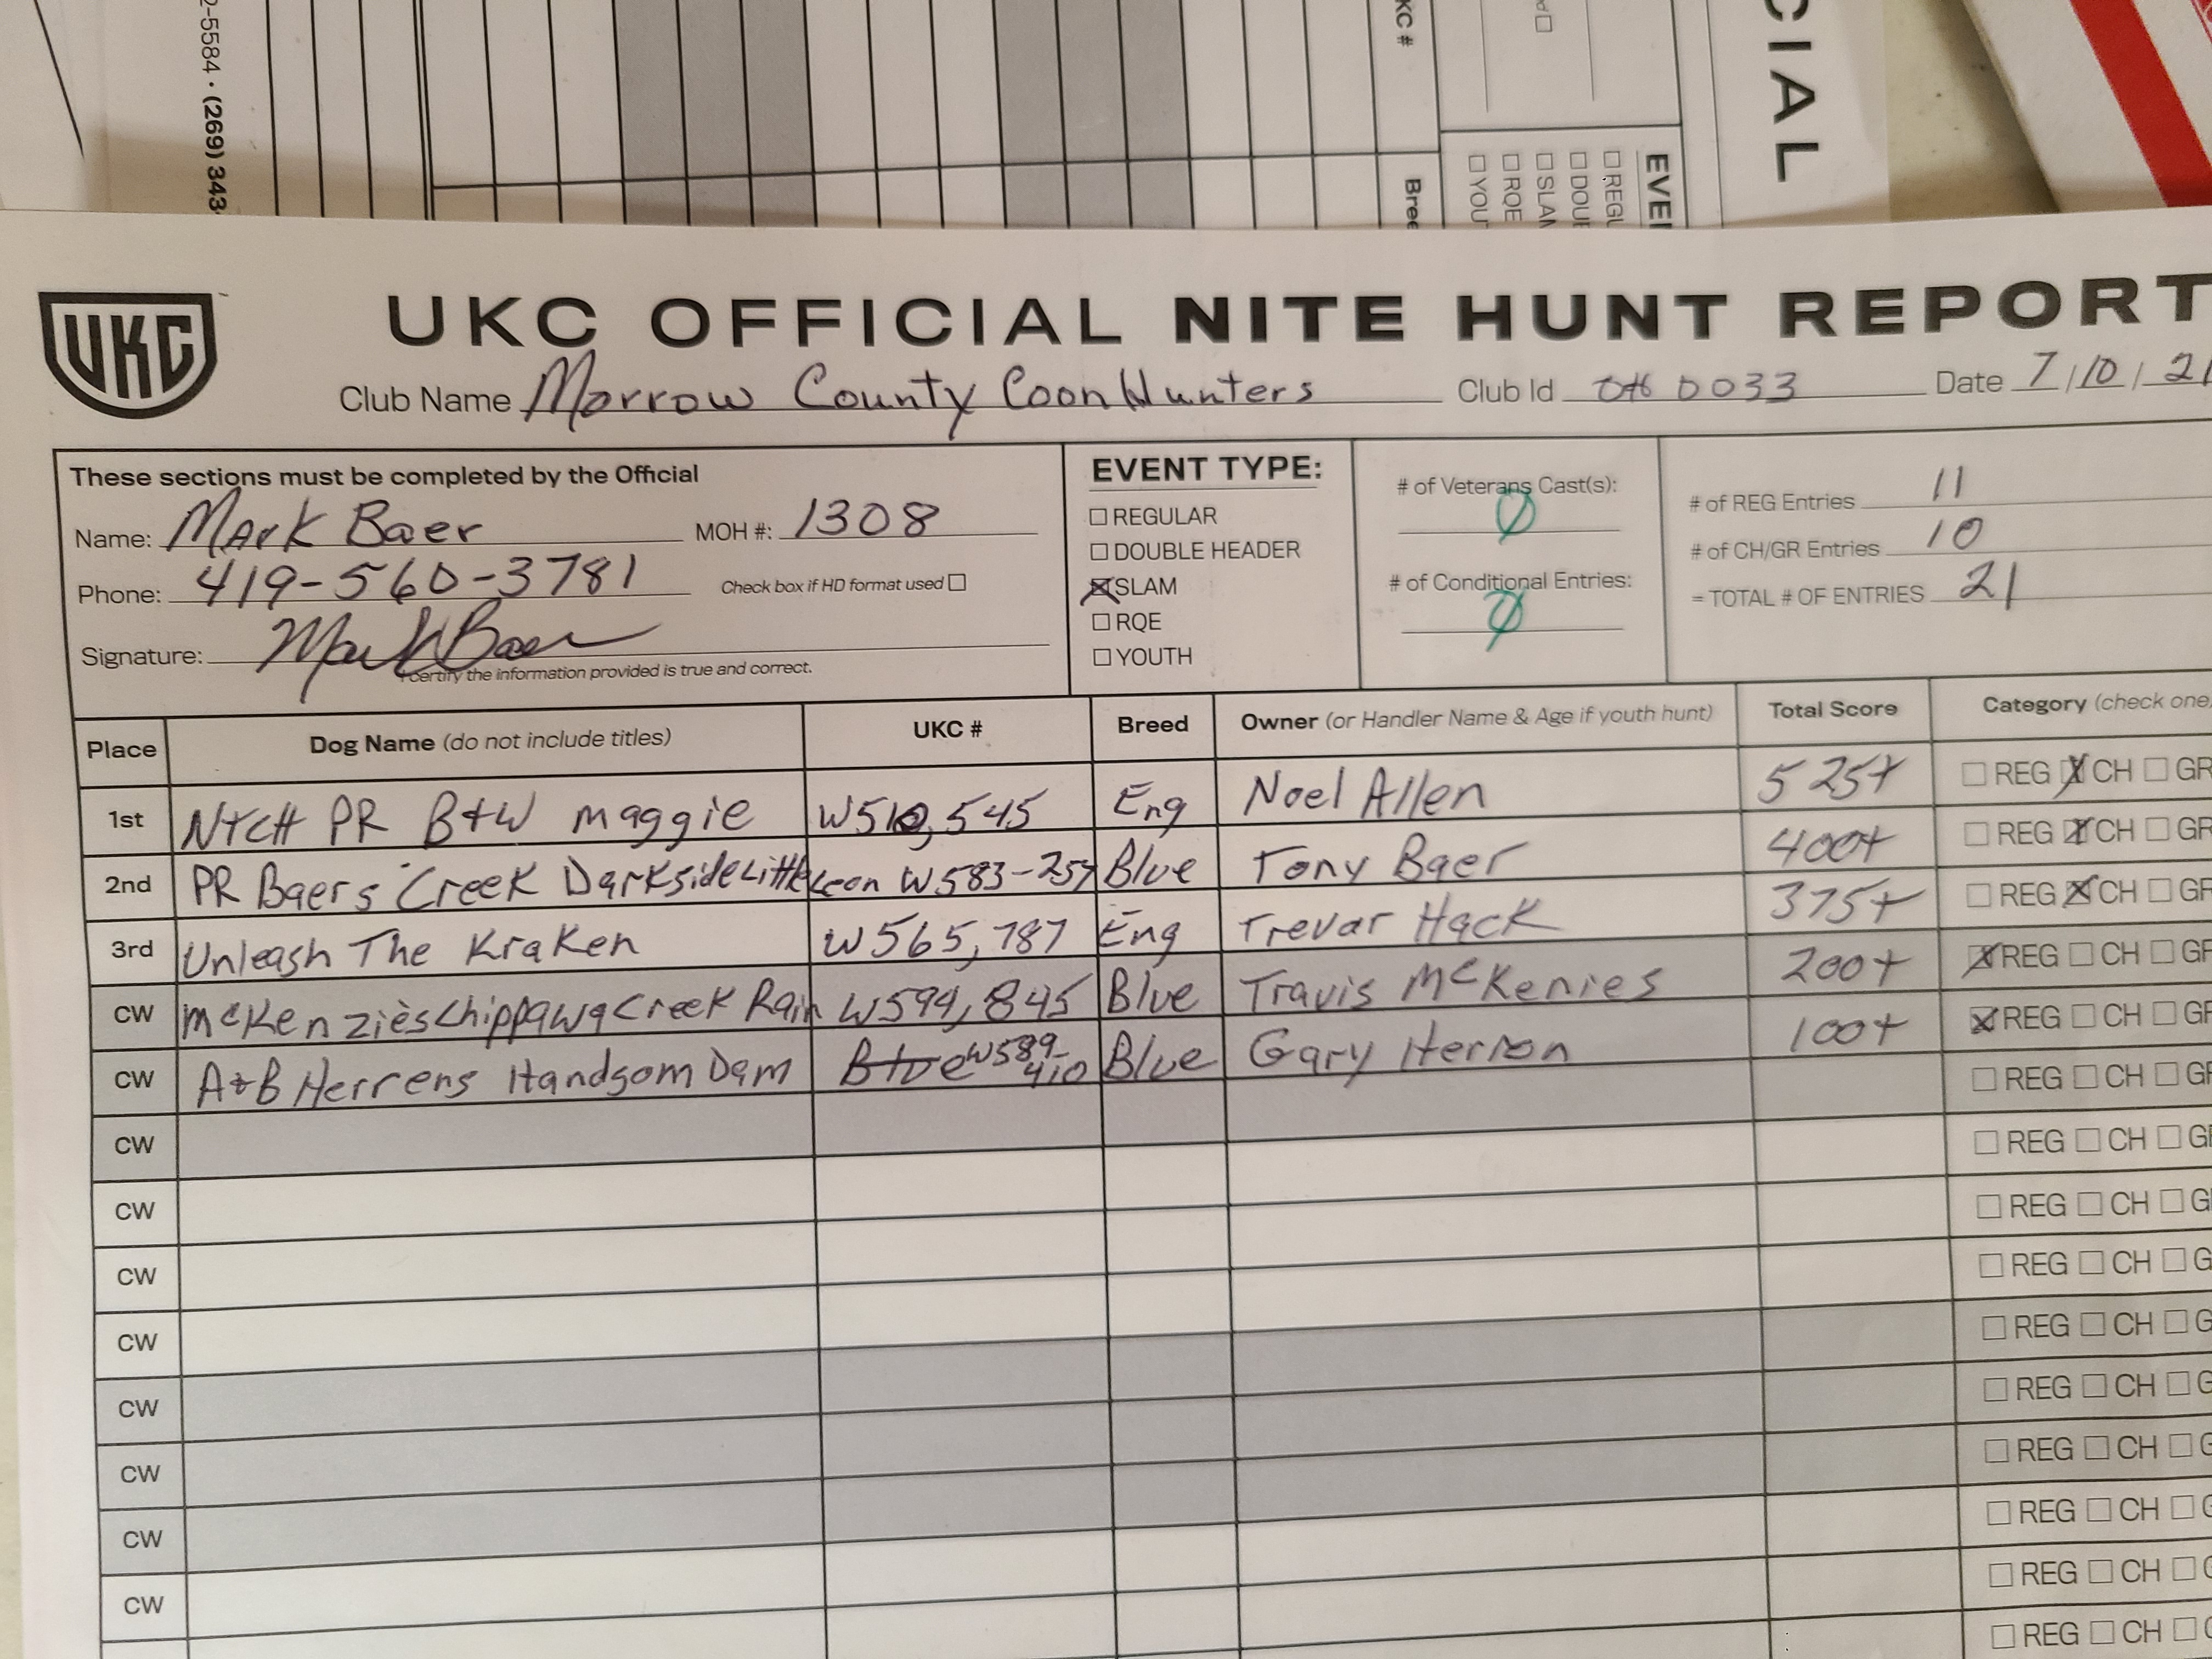 2-5584 • (269) 343-
KC #
Bree
EVE
REGU
DOUB
SLAM
RQE
YOU
CIAL
UKC
UKC OFFICIAL NITE HUNT REPORT
Club Name Morrow County CoonHunters Club Id OH 0033 Date 7/10/21
These sections must be completed by the Official
Name: Mark Baer MOH #: 1308
Phone: 419-560-3781 Check box if HD format used ☐
Signature: Mark Baer
I certify the information provided is true and correct.
EVENT TYPE:
☐ REGULAR
☐ DOUBLE HEADER
☒ SLAM
☐ RQE
☐ YOUTH
# of Veterans Cast(s):
0
# of Conditional Entries:
0
# of REG Entries 11
# of CH/GR Entries 10
= TOTAL # OF ENTRIES 21
Place Dog Name (do not include titles) UKC # Breed Owner (or Handler Name & Age if youth hunt) Total Score Category (check one
1st NTCH PR B+W maggie W510,545 Eng Noel Allen 525+ ☐ REG ☒ CH ☐ GR
2nd PR Baers Creek Darkside Little Leon W583-257 Blue Tony Baer 400+ ☐ REG ☒ CH ☐ GR
3rd Unleash The Kraken W565,787 Eng Trevar Hack 375+ ☐ REG ☒ CH ☐ GR
CW McKenziesChippawaCreek Rain W594,845 Blue Travis McKenies 200+ ☒ REG ☐ CH ☐ GR
CW A+B Herrens Handsom Dam Blue W589-410 Blue Gary Herron 100+ ☒ REG ☐ CH ☐ GR
☐ REG ☐ CH ☐ GR
CW ☐ REG ☐ CH ☐ GR
CW ☐ REG ☐ CH ☐ GR
CW ☐ REG ☐ CH ☐ G
CW ☐ REG ☐ CH ☐ G
CW ☐ REG ☐ CH ☐ G
CW ☐ REG ☐ CH ☐ G
CW ☐ REG ☐ CH ☐ G
CW ☐ REG ☐ CH ☐ G
☐ REG ☐ CH ☐ G